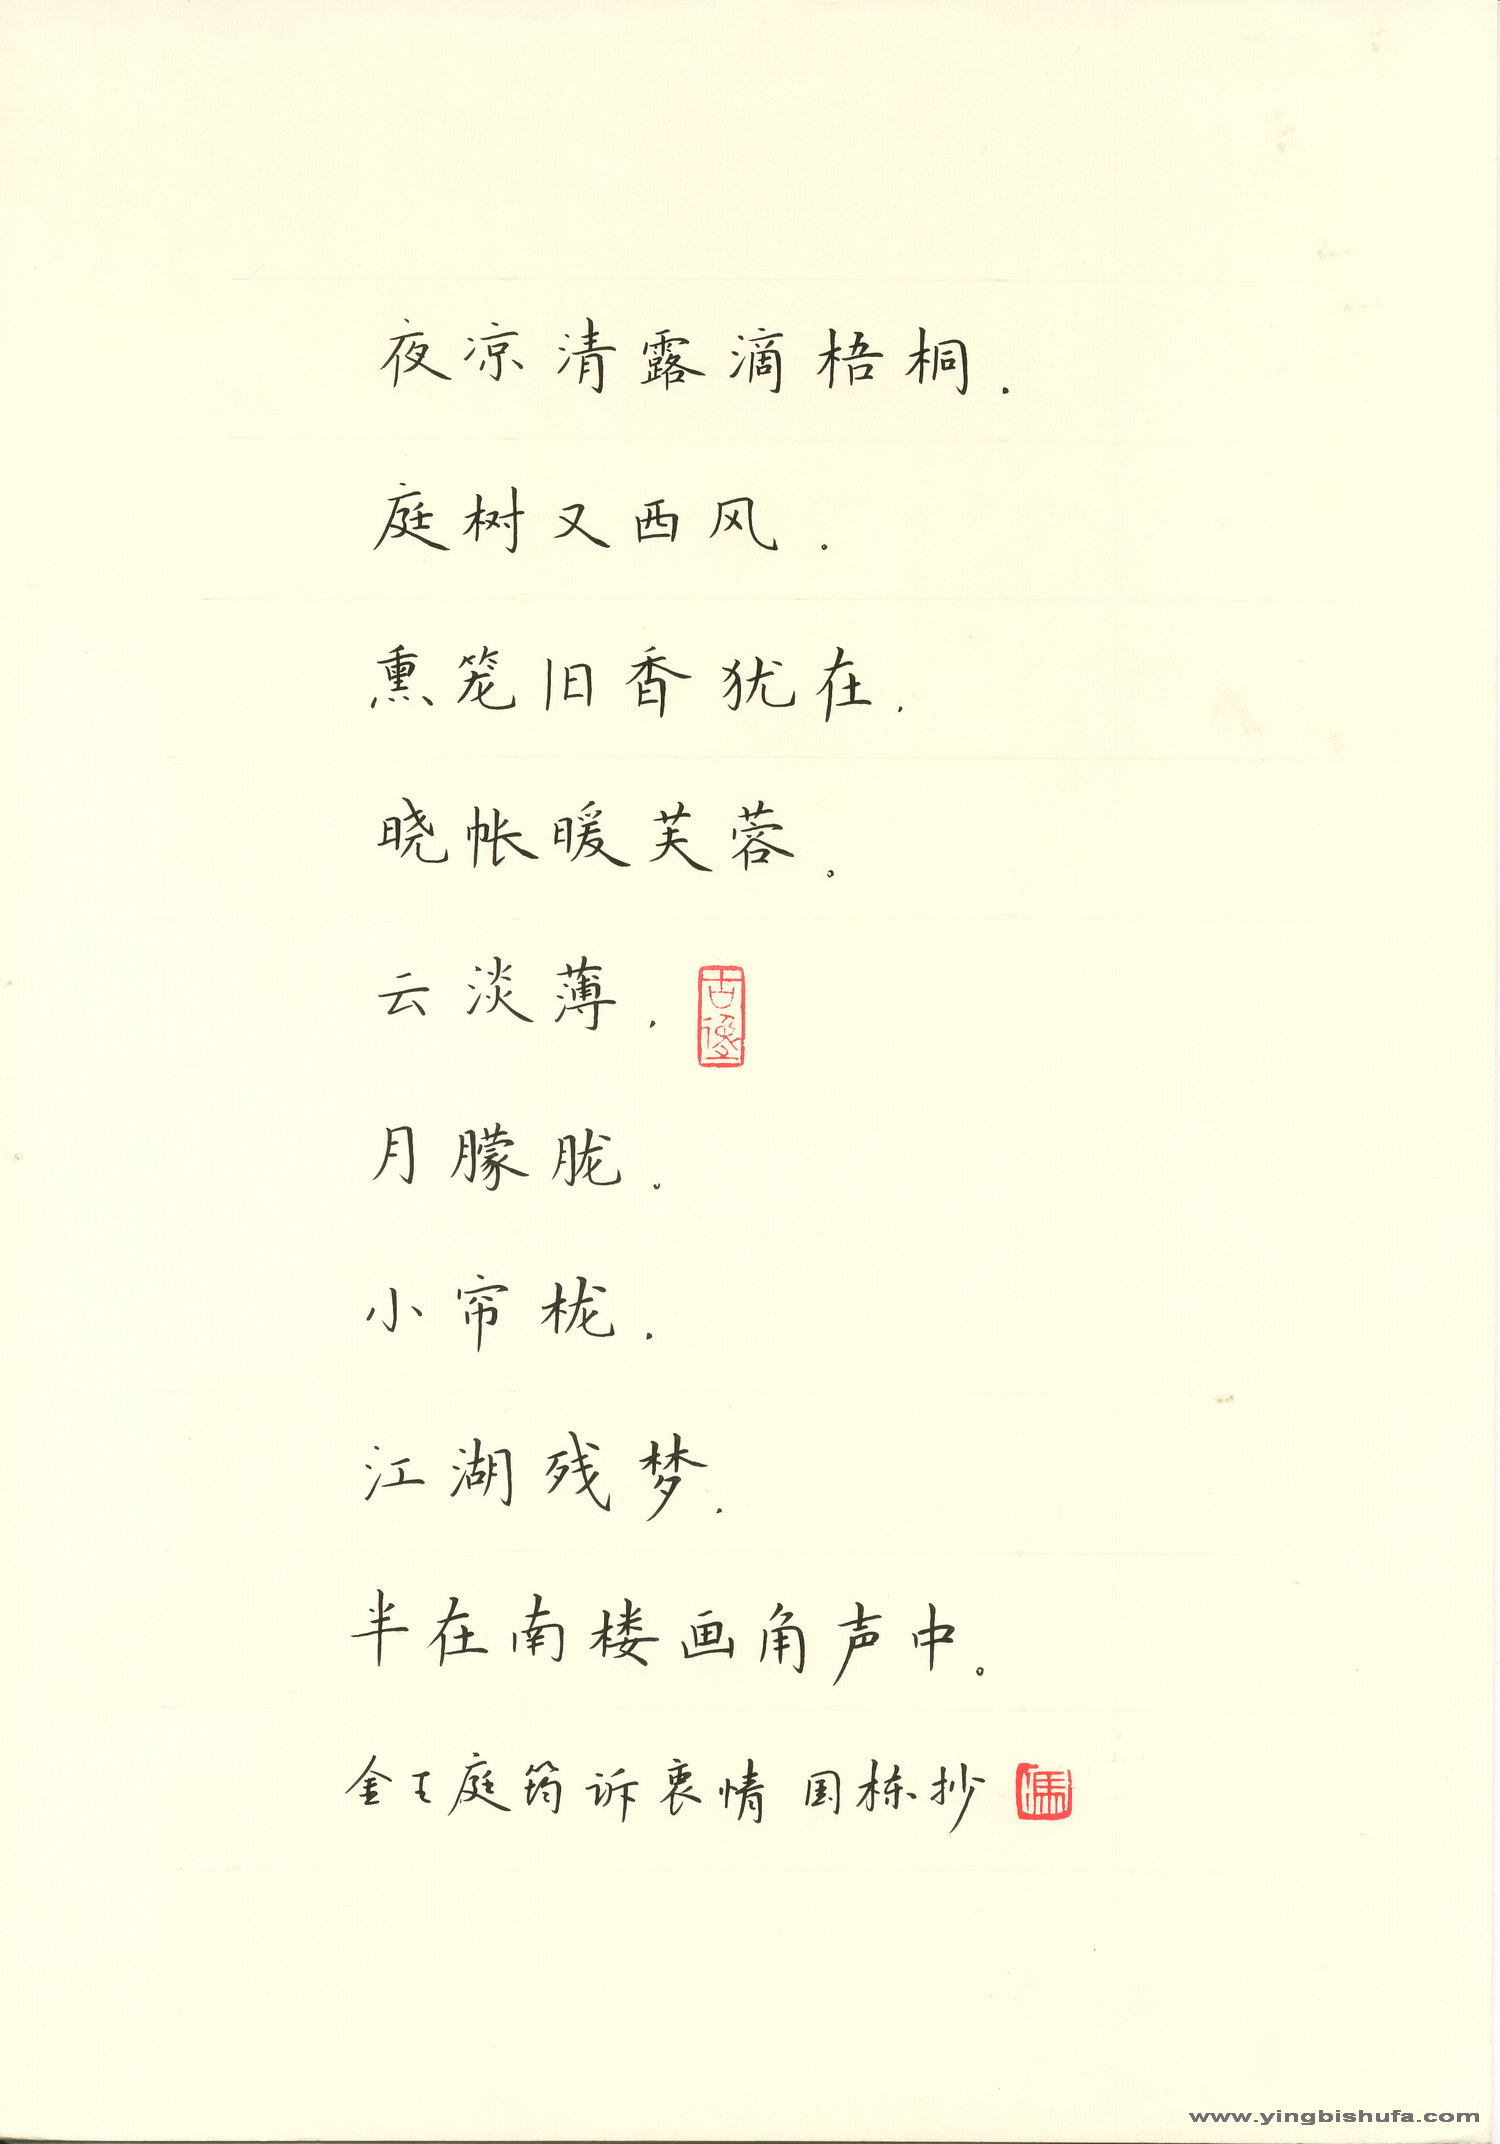 夜凉清露滴梧桐.
庭树又西风.
熏笼旧香犹在.
晓帐暖芙蓉。
云淡薄.
月朦胧.
小帘栊.
江湖残梦.
半在南楼画角声中。
金王庭筠诉衷情 国栋抄
www.yingbishufa.com